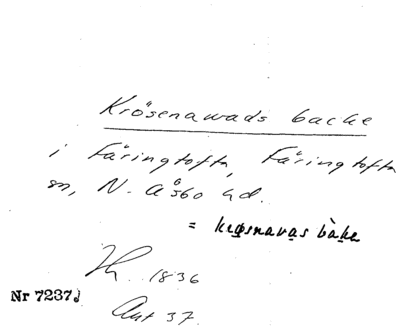 Krösenawads backe
i Färingtofta, Färingtofta
sn, N. Åsbo hd.
= krøsnavas bàkə
1836
Nr 7237
Ant 37.